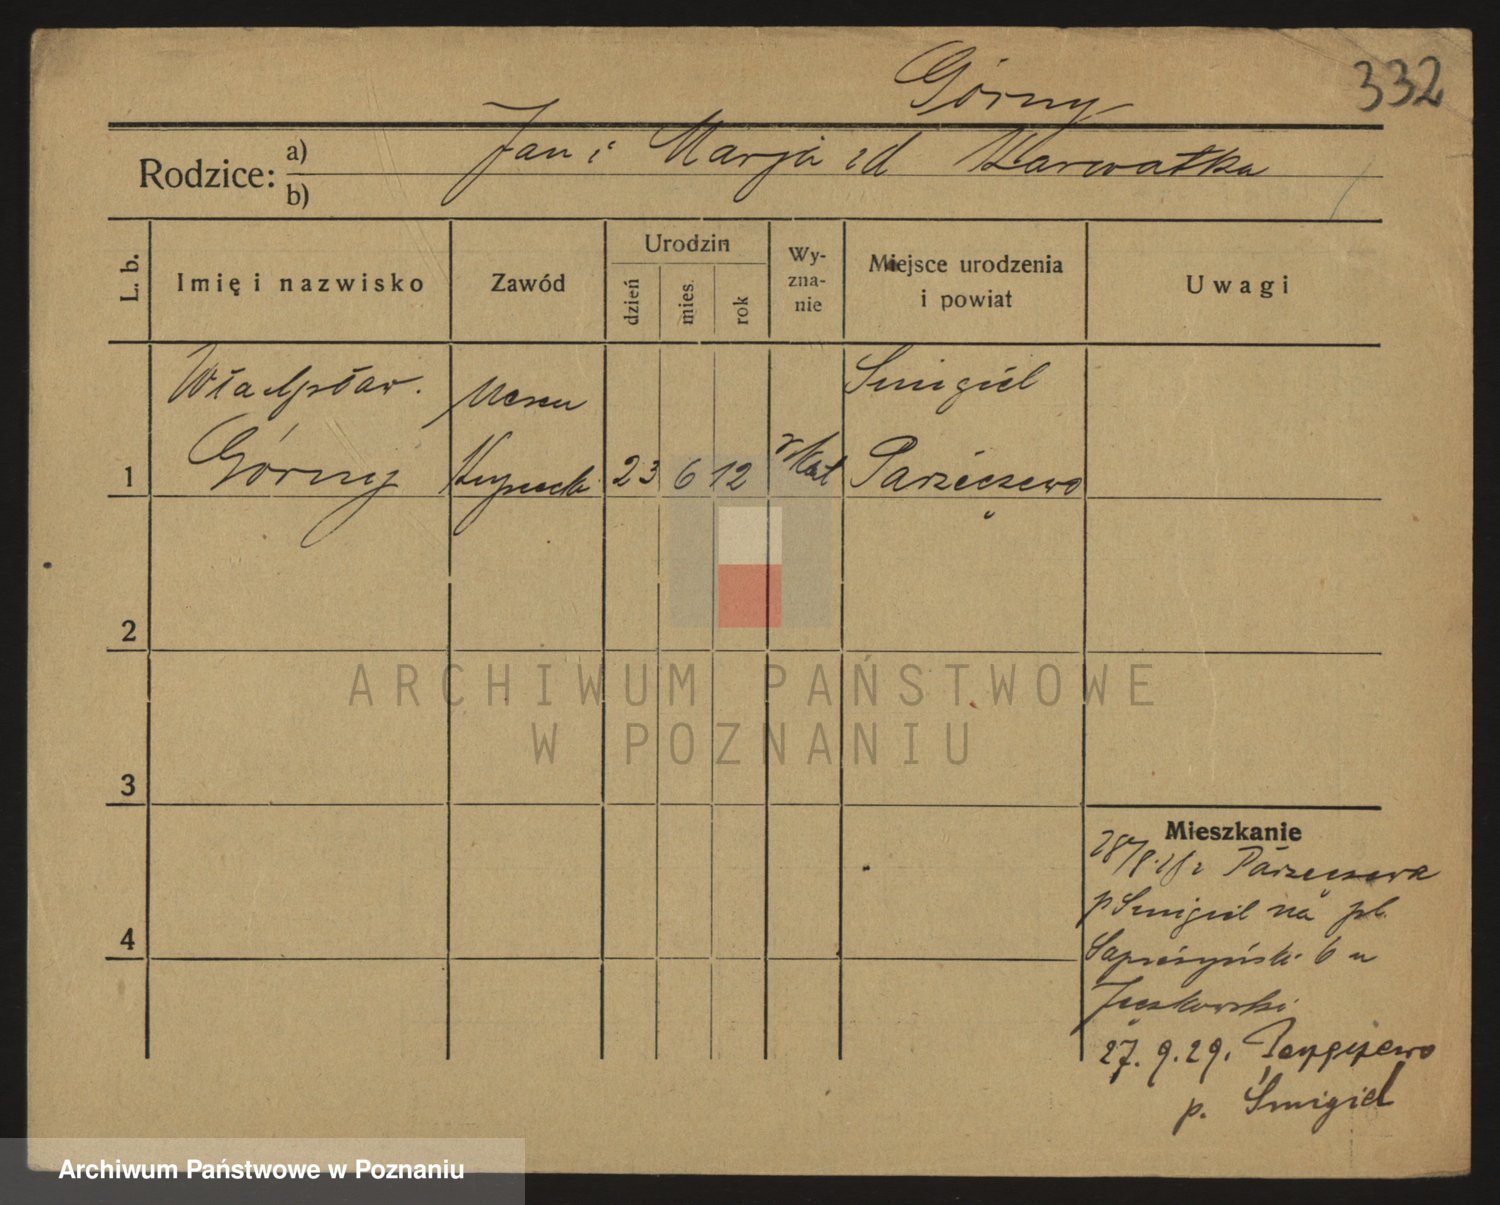 Górny
332
Rodzice:
a)
b)
Jan i Marja zd Karwatka
L. b.
Imię i nazwisko
Zawód
Urodzin
dzień
mies.
rok
Wy-
zna-
nie
Miejsce urodzenia
i powiat
Uwagi
Władysław
Górny
uczeń
kupiecki
23 6 12
r kat
Śmigiel
Parzęczewo
1
2
3
4
Mieszkanie
Parzęczewa
p Śmigiel na pl.
Sapieżyński 6 u
27. 9. 29.
p. Śmigiel
ARCHIWUM PAŃSTWOWE
W POZNANIU
Archiwum Państwowe w Poznaniu